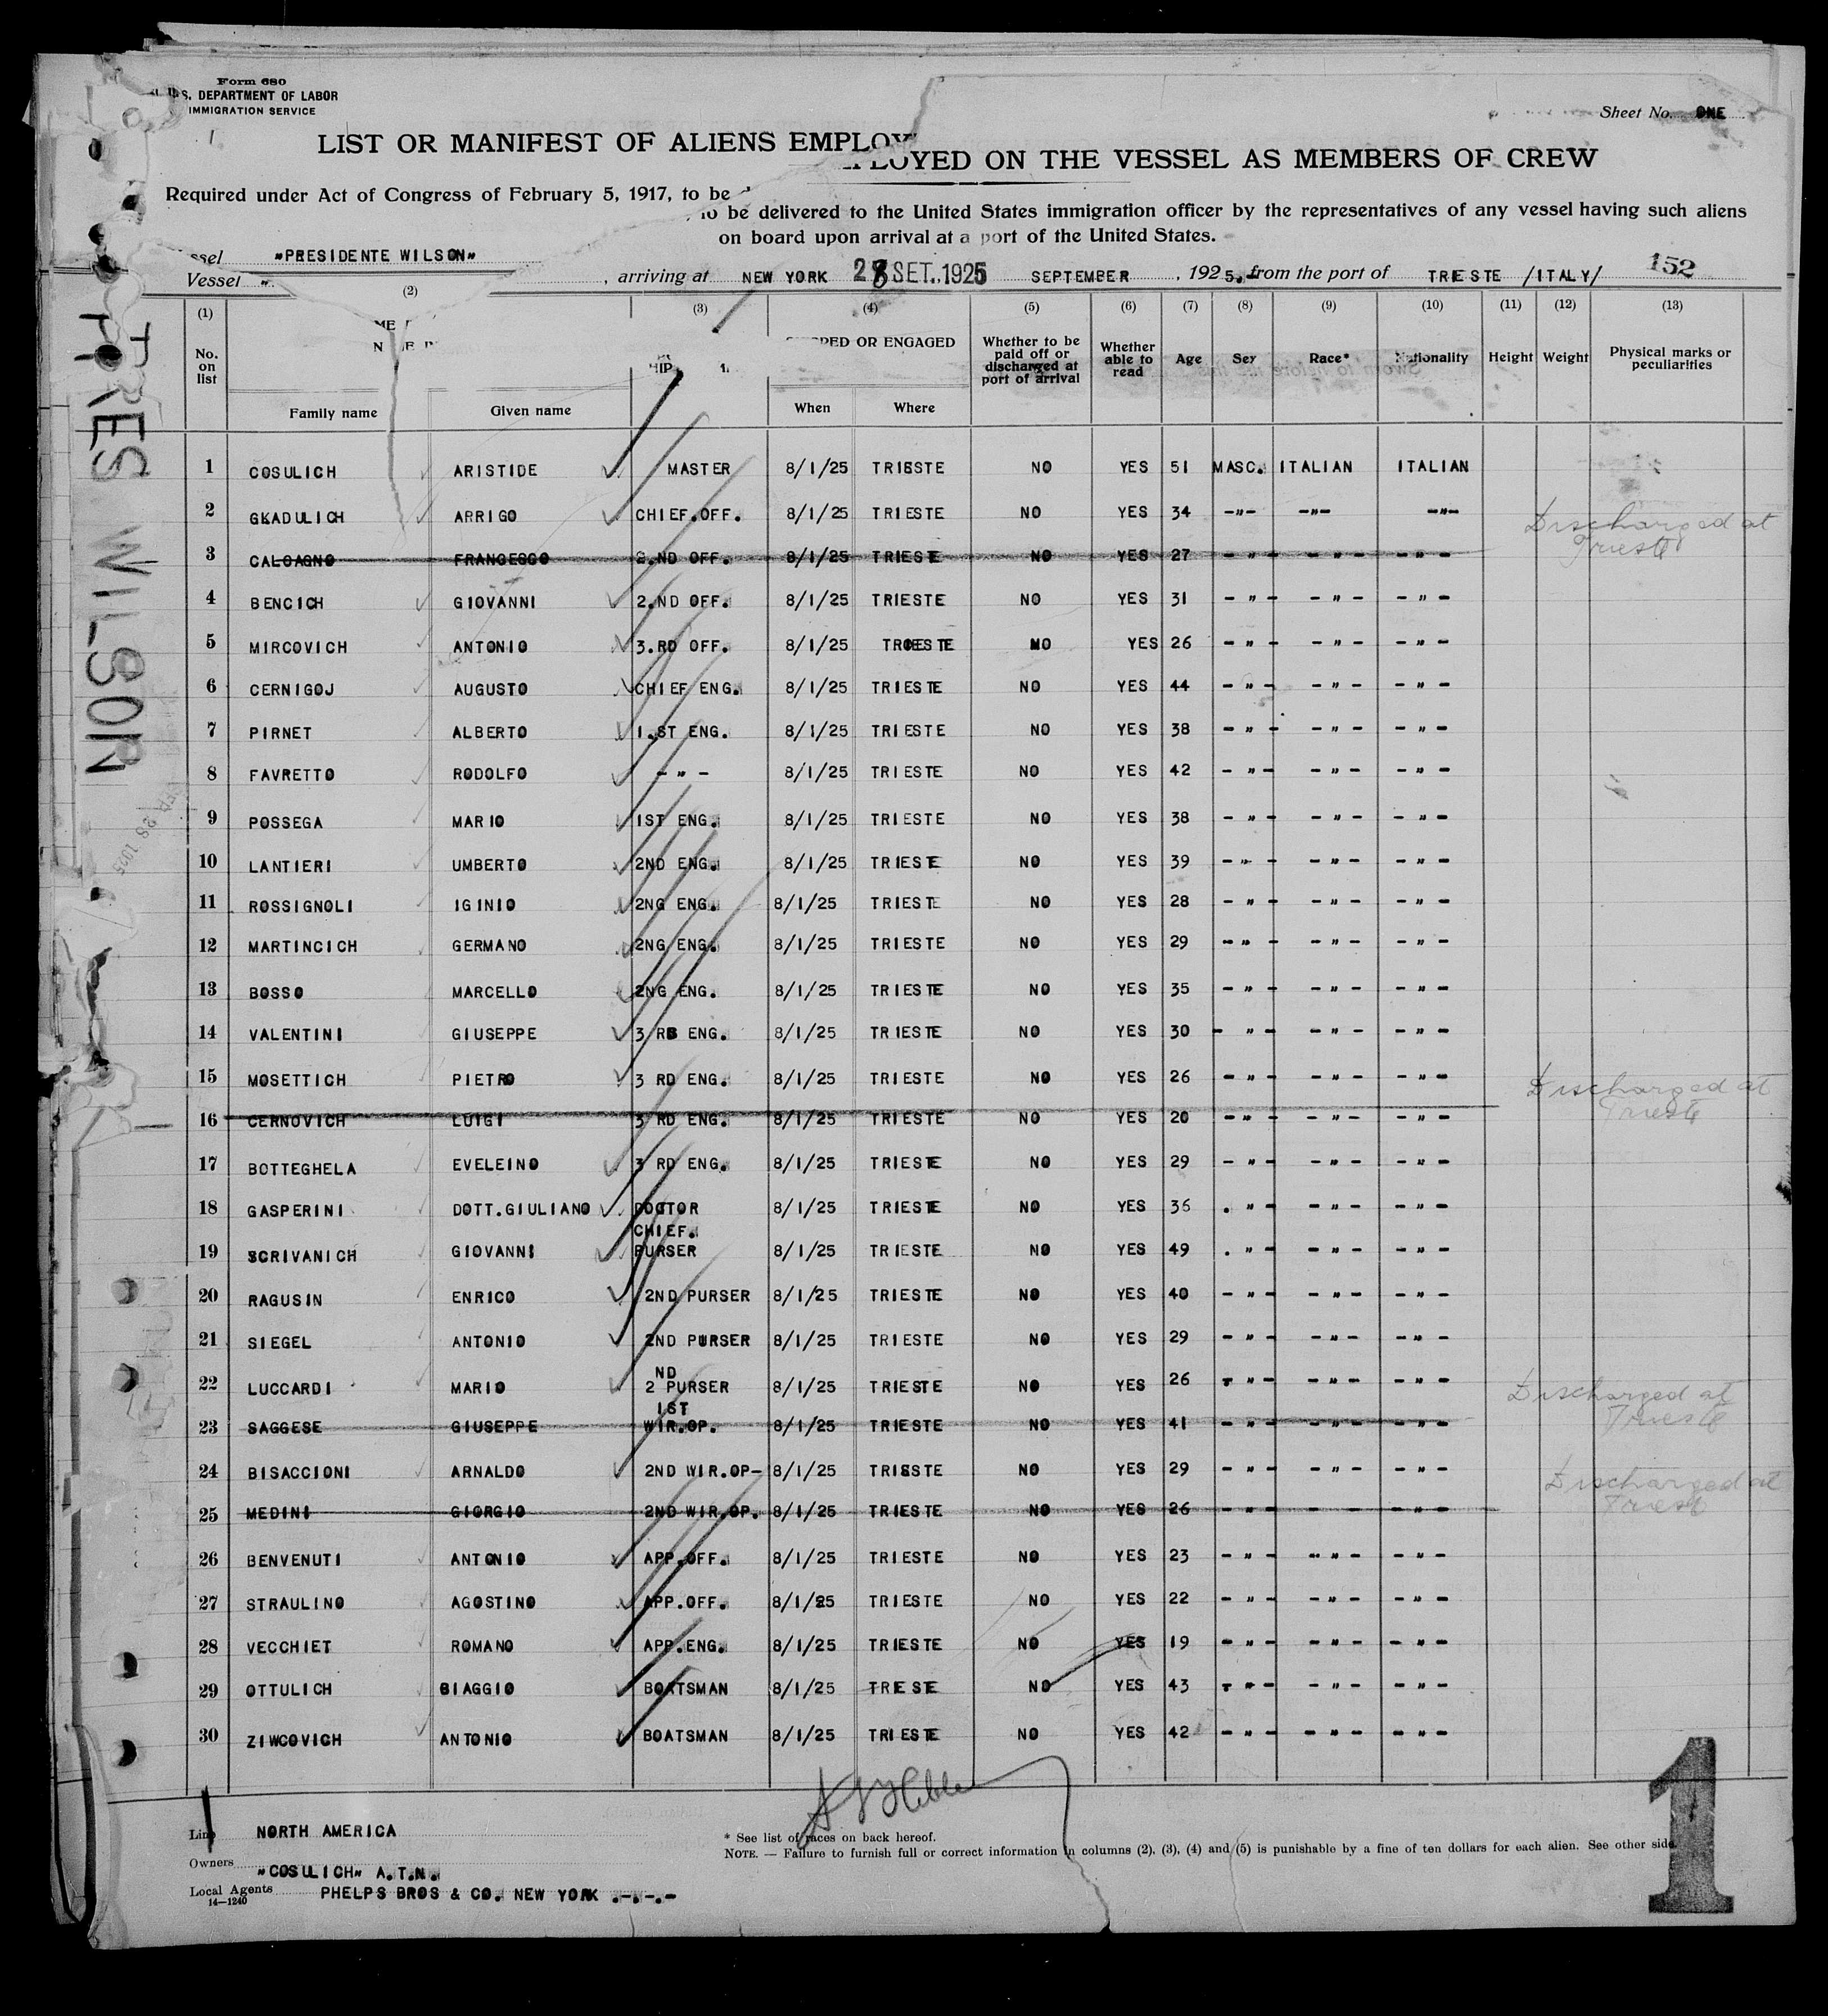 Form 680
U.S. DEPARTMENT OF LABOR
IMMIGRATION SERVICE
Sheet No. ONE
LIST OR MANIFEST OF ALIENS EMPLOYED ON THE VESSEL AS MEMBERS OF CREW
Required under Act of Congress of February 5, 1917, to be delivered to the United States immigration officer by the representatives of any vessel having such aliens
on board upon arrival at a port of the United States.
Vessel "PRESIDENTE WILSON", arriving at NEW YORK 28 SET. 1925 SEPTEMBER, 1925.- from the port of TRIESTE /ITALY/ 152
(1) (2) (3) (4) (5) (6) (7) (8) (9) (10) (11) (12) (13)
No. on list Family name Given name When Where Whether to be paid off or discharged at port of arrival Whether able to read Age Sex Race* Nationality Height Weight Physical marks or peculiarities
1 COSULICH ARISTIDE MASTER 8/1/25 TRIESTE NO YES 51 MASC. ITALIAN ITALIAN
2 GKADULICH ARRIGO CHIEF.OFF. 8/1/25 TRIESTE NO YES 34 -"- -"- -"- Discharged at
3 CALCAGNO FRANCESCO 2.ND OFF. 8/1/25 TRIESTE NO YES 27 - " - - " - - " - Trieste
4 BENCICH GIOVANNI 2.ND OFF. 8/1/25 TRIESTE NO YES 31 - " - - " - - " -
5 MIRCOVICH ANTONIO 3.RD OFF. 8/1/25 TROESTE NO YES 26 - " - - " - - " -
6 CERNIGOJ AUGUSTO CHIEF ENG. 8/1/25 TRIESTE NO YES 44 - " - - " - - " -
7 PIRNET ALBERTO 1.ST ENG. 8/1/25 TRIESTE NO YES 38 - " - - " - - " -
8 FAVRETTO RODOLFO - " - 8/1/25 TRIESTE NO YES 42 - " - - " - - " -
9 POSSEGA MARIO 1ST ENG. 8/1/25 TRIESTE NO YES 38 - " - - " - - " -
10 LANTIERI UMBERTO 2ND ENG. 8/1/25 TRIESTE NO YES 39 - " - - " - - " -
11 ROSSIGNOLI IGINIO 2NG ENG. 8/1/25 TRIESTE NO YES 28 - " - - " - - " -
12 MARTINCICH GERMANO 2NG ENG. 8/1/25 TRIESTE NO YES 29 - " - - " - - " -
13 BOSSO MARCELLO 2NG ENG. 8/1/25 TRIESTE NO YES 35 - " - - " - - " -
14 VALENTINI GIUSEPPE 3 RD ENG. 8/1/25 TRIESTE NO YES 30 - " - - " - - " -
15 MOSETTICH PIETRO 3 RD ENG. 8/1/25 TRIESTE NO YES 26 - " - - " - - " - Discharged at
16 CERNOVICH LUIGI 3 RD ENG. 8/1/25 TRIESTE NO YES 20 - " - - " - - " - Trieste
17 BOTTEGHELA EVELEINO 3 RD ENG. 8/1/25 TRIESTE NO YES 29 - " - - " - - " -
18 GASPERINI DOTT.GIULIANO DOCTOR 8/1/25 TRIESTE NO YES 36 . " - - " - - " -
19 SCRIVANICH GIOVANNI CHIEF. PURSER 8/1/25 TRIESTE NO YES 49 . " - - " - - " -
20 RAGUSIN ENRICO 2ND PURSER 8/1/25 TRIESTE NO YES 40 - " - - " - - " -
21 SIEGEL ANTONIO 2ND PURSER 8/1/25 TRIESTE NO YES 29 - " - - " - - " -
22 LUCCARDI MARIO 2ND PURSER 8/1/25 TRIESTE NO YES 26 - " - - " - - " - Discharged at
23 SAGGESE GIUSEPPE 1ST WIR.OP. 8/1/25 TRIESTE NO YES 41 - " - - " - - " - Trieste
24 BISACCIONI ARNALDO 2ND WIR.OP- 8/1/25 TRIESTE NO YES 29 - " - - " - - " - Discharged at
25 MEDINI GIORGIO 2ND WIR.OP. 8/1/25 TRIESTE NO YES 26 - " - - - - " - Trieste
26 BENVENUTI ANTONIO APP.OFF. 8/1/25 TRIESTE NO YES 23 - " - - " - - " -
27 STRAULINO AGOSTINO APP.OFF. 8/1/25 TRIESTE NO YES 22 - " - - " - - " -
28 VECCHIET ROMANO APP.ENG. 8/1/25 TRIESTE NO YES 19 - " - - " - - " -
29 OTTULICH BIAGGIO BOATSMAN 8/1/25 TRIESTE NO YES 43 - " - - " - - " -
30 ZIWCOVICH ANTONIO BOATSMAN 8/1/25 TRIESTE NO YES 42 - " - - " - - " -
Line NORTH AMERICA
Owners "COSULICH" A.T.N.
Local Agents PHELPS BROS & CO. NEW YORK .-.-.-
14—1240
* See list of races on back hereof.
NOTE. — Failure to furnish full or correct information in columns (2), (3), (4) and (5) is punishable by a fine of ten dollars for each alien. See other side.
1
PRES WILSON